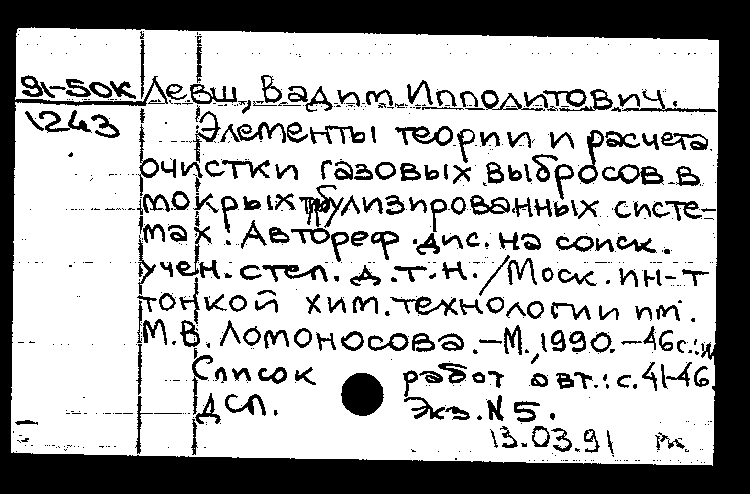 91-50К Левш, Вадим Ипполитович.
1243 Элементы теории и расчета
очистки газовых выбросов в
мокрых турбулизированных систе-
мах: Автореф. дис. на соиск.
учен. степ. д.т.н. / Моск. ин-т
тонкой хим. технологии им.
М.В. Ломоносова. - М., 1990. - 46 с.:
Список работ авт.: с. 41-46.
ДСП. Экз. N 5.
13.03.91